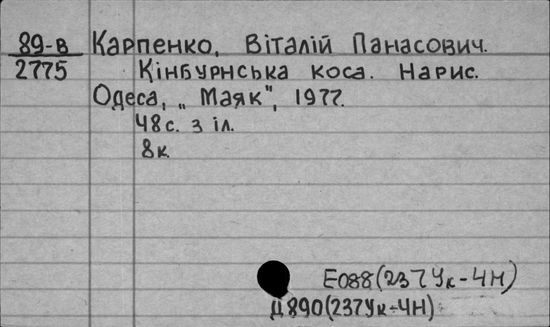 89-в Карпенко, Віталій Панасович.
2775 Кінбурнська коса. Нарис.
Одеса, „Маяк", 1977.
48с. з іл.
8к.
Е088(237Ук-4Н)
Д890(237Ук-4Н)